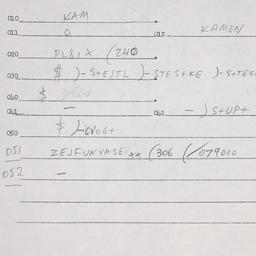 010 KAM
011 0 012 KAMEN
020 PL81X (240
030 $ )-S+EJTL )-STES+KE )-S+TEGL
040 $
041 — 042 — ) S+UP+
050 $ )-GVOG+
051 ZEJFUNVASE:** (306 (/079010
052 —